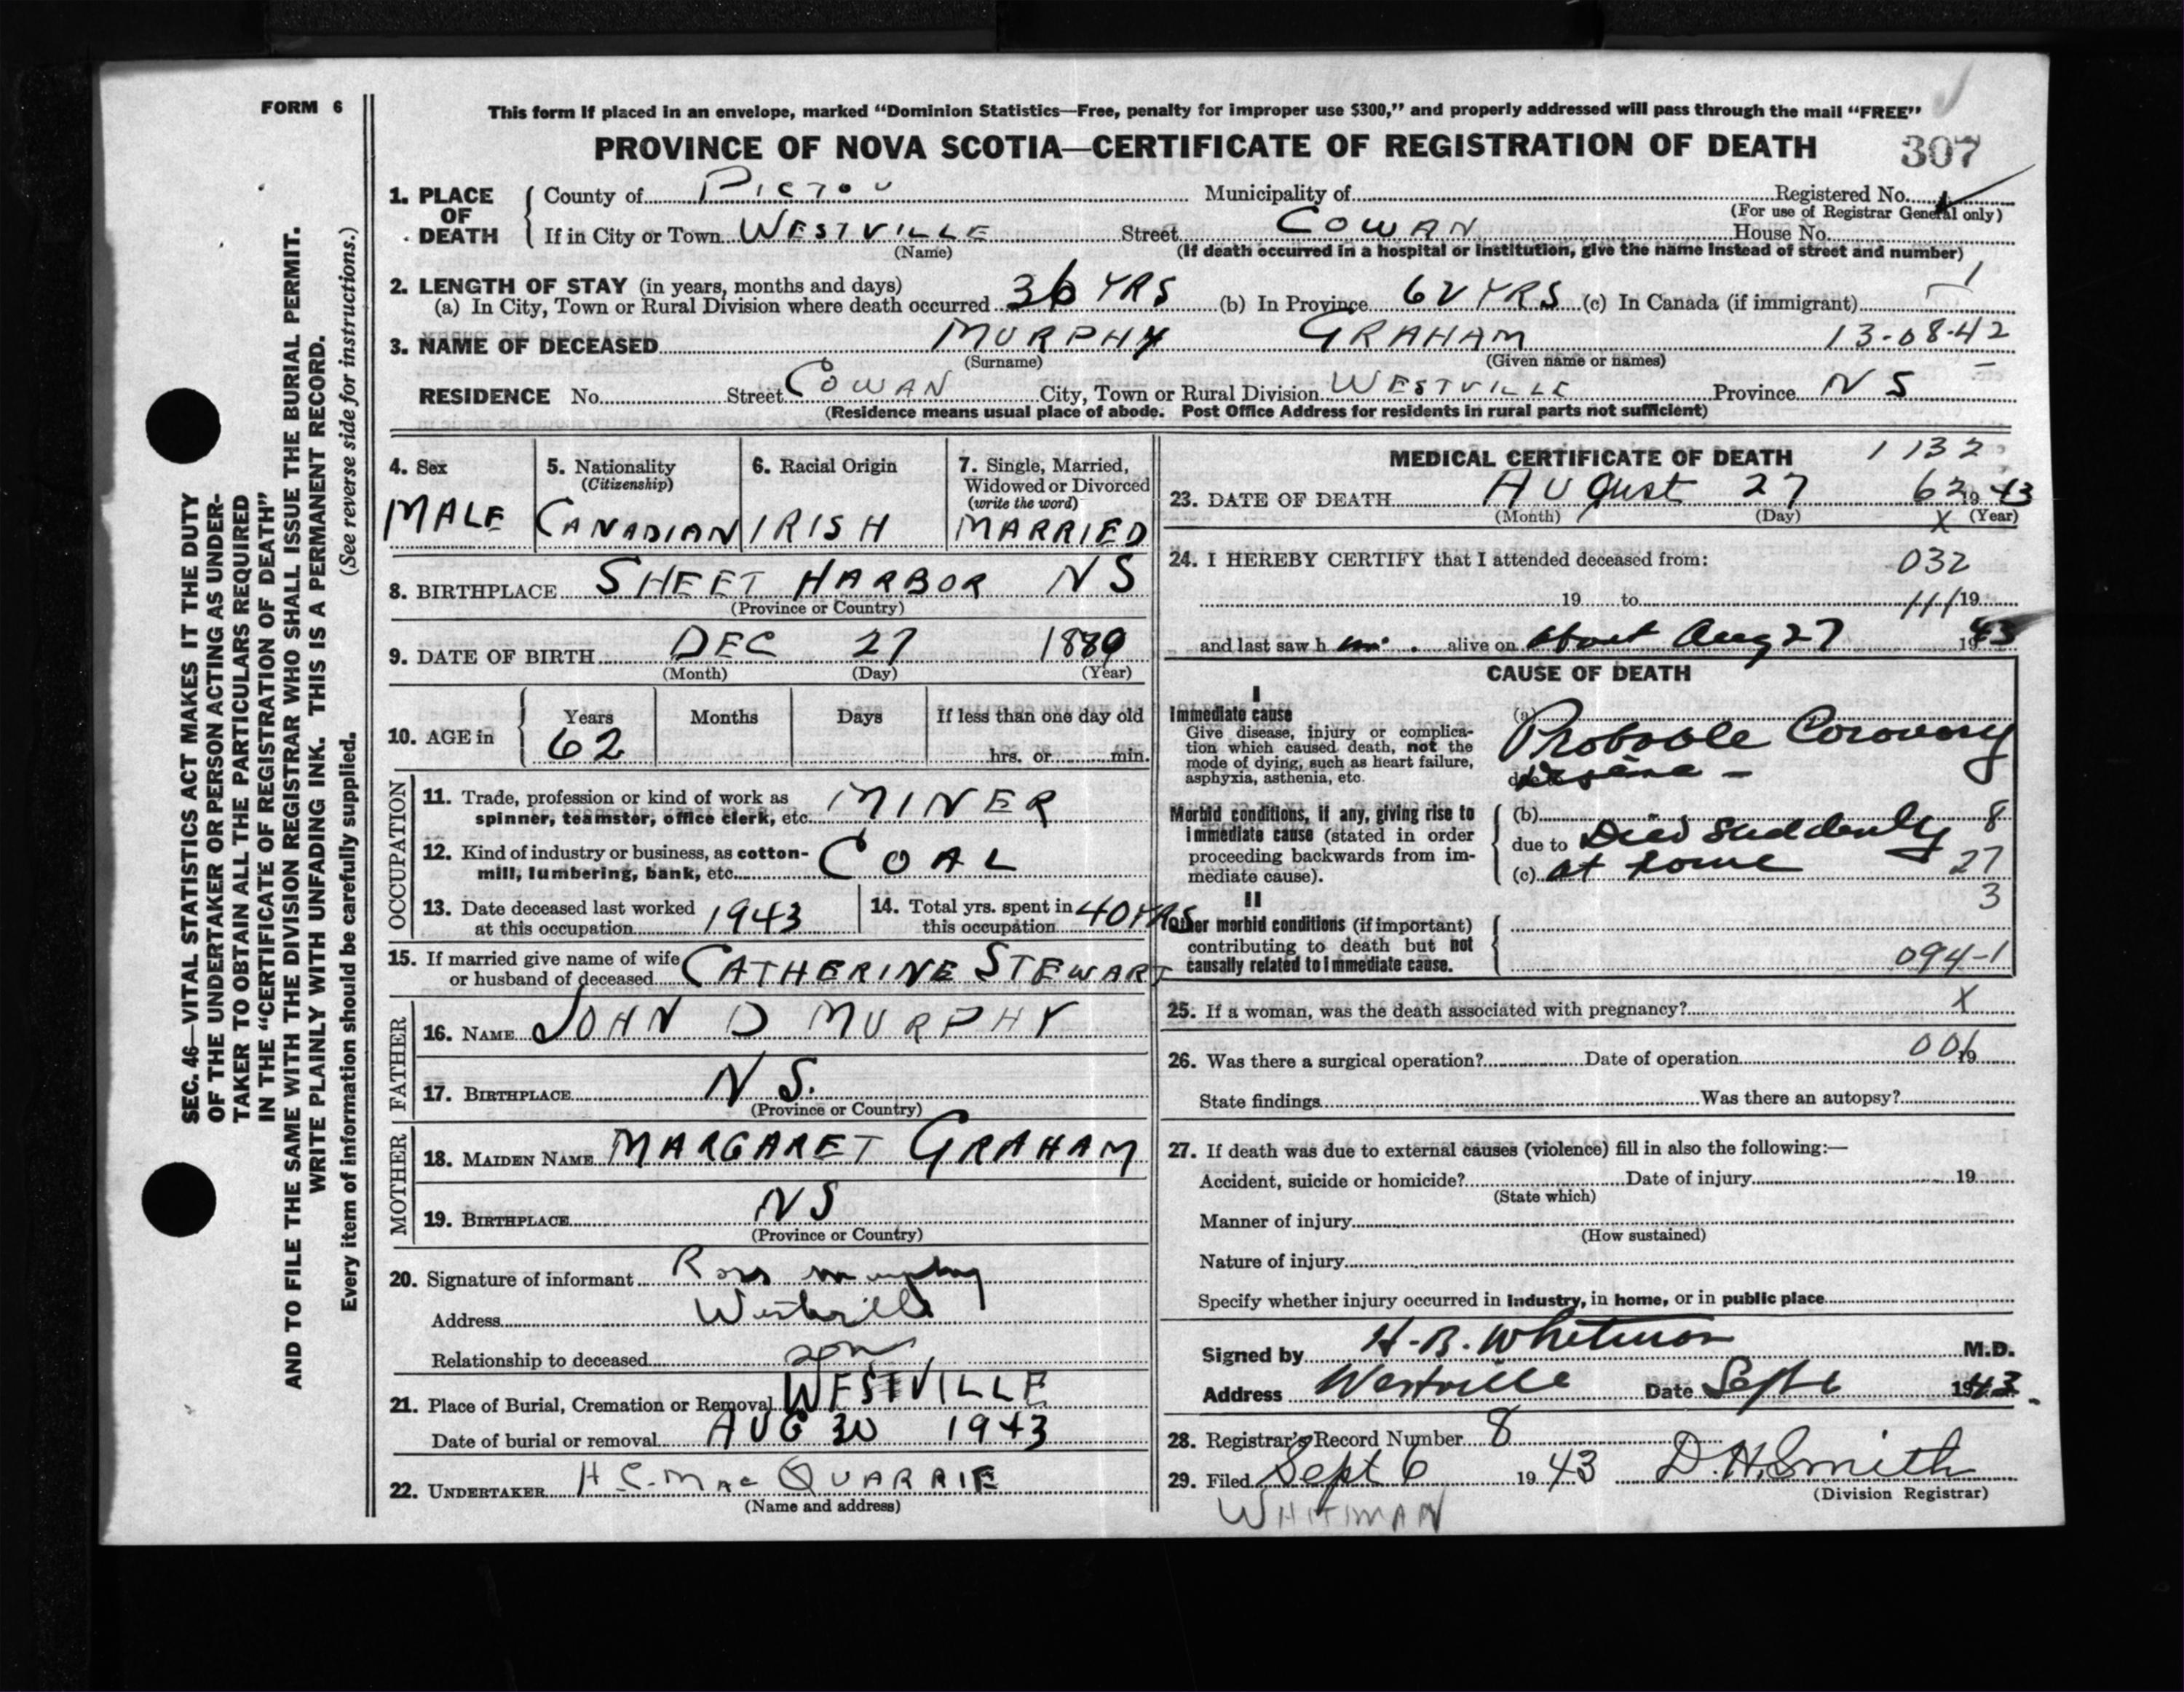 FORM 6
This form if placed in an envelope, marked “Dominion Statistics—Free, penalty for improper use $300,” and properly addressed will pass through the mail “FREE”
PROVINCE OF NOVA SCOTIA—CERTIFICATE OF REGISTRATION OF DEATH 307
SEC. 46—VITAL STATISTICS ACT MAKES IT THE DUTY
OF THE UNDERTAKER OR PERSON ACTING AS UNDER-
TAKER TO OBTAIN ALL THE PARTICULARS REQUIRED
IN THE “CERTIFICATE OF REGISTRATION OF DEATH”
AND TO FILE THE SAME WITH THE DIVISION REGISTRAR WHO SHALL ISSUE THE BURIAL PERMIT.
WRITE PLAINLY WITH UNFADING INK. THIS IS A PERMANENT RECORD.
Every item of information should be carefully supplied. (See reverse side for instructions.)
1. PLACE OF DEATH
County of PICTOU Municipality of Registered No.
(For use of Registrar General only)
If in City or Town WESTVILLE Street COWAN House No.
(Name) (If death occurred in a hospital or institution, give the name instead of street and number)
2. LENGTH OF STAY (in years, months and days)
(a) In City, Town or Rural Division where death occurred 36 YRS (b) In Province 62 YRS (c) In Canada (if immigrant)
3. NAME OF DECEASED MURPHY GRAHAM 13-08-42
(Surname) (Given name or names)
RESIDENCE No. Street COWAN City, Town or Rural Division WESTVILLE Province N S
(Residence means usual place of abode. Post Office Address for residents in rural parts not sufficient)
4. Sex
MALE
5. Nationality
(Citizenship)
CANADIAN
6. Racial Origin
IRISH
7. Single, Married,
Widowed or Divorced
(write the word)
MARRIED
8. BIRTHPLACE SHEET HARBOR N S
(Province or Country)
9. DATE OF BIRTH DEC 27 1880
(Month) (Day) (Year)
10. AGE in
Years Months Days If less than one day old
62
hrs. or min.
OCCUPATION
11. Trade, profession or kind of work as
spinner, teamster, office clerk, etc. MINER
12. Kind of industry or business, as cotton-
mill, lumbering, bank, etc. COAL
13. Date deceased last worked
at this occupation 1943
14. Total yrs. spent in
this occupation 40 YRS
15. If married give name of wife
or husband of deceased CATHERINE STEWART
FATHER
16. NAME JOHN D MURPHY
17. BIRTHPLACE N S.
(Province or Country)
MOTHER
18. MAIDEN NAME MARGARET GRAHAM
19. BIRTHPLACE N S
(Province or Country)
20. Signature of informant Ross Murphy
Address Westville
Relationship to deceased son
21. Place of Burial, Cremation or Removal WESTVILLE
Date of burial or removal AUG 30 1943
22. UNDERTAKER H. C. MacQUARRIE
(Name and address)
MEDICAL CERTIFICATE OF DEATH 1132
23. DATE OF DEATH August 27 62 1943
(Month) (Day) X (Year)
24. I HEREBY CERTIFY that I attended deceased from: 032
19 to 111 19
and last saw h im alive on about Aug 27 1943
CAUSE OF DEATH
I
Immediate cause
Give disease, injury or complica-
tion which caused death, not the
mode of dying, such as heart failure,
asphyxia, asthenia, etc.
(a) Probable Coronary
due to disease -
Morbid conditions, if any, giving rise to
immediate cause (stated in order
proceeding backwards from im-
mediate cause).
(b) 8
due to Died suddenly
(c) at home 27
3
II
Other morbid conditions (if important)
contributing to death but not
causally related to immediate cause.
094-1
25. If a woman, was the death associated with pregnancy? X
26. Was there a surgical operation? Date of operation 006 19
State findings Was there an autopsy?
27. If death was due to external causes (violence) fill in also the following:—
Accident, suicide or homicide? Date of injury 19
(State which)
Manner of injury
(How sustained)
Nature of injury
Specify whether injury occurred in industry, in home, or in public place
Signed by H. B. Whitman M.D.
Address Westville Date Sept 6 1943.
28. Registrar's Record Number 8
29. Filed Sept 6 1943 D. H. Smith
(Division Registrar)
WHITMAN